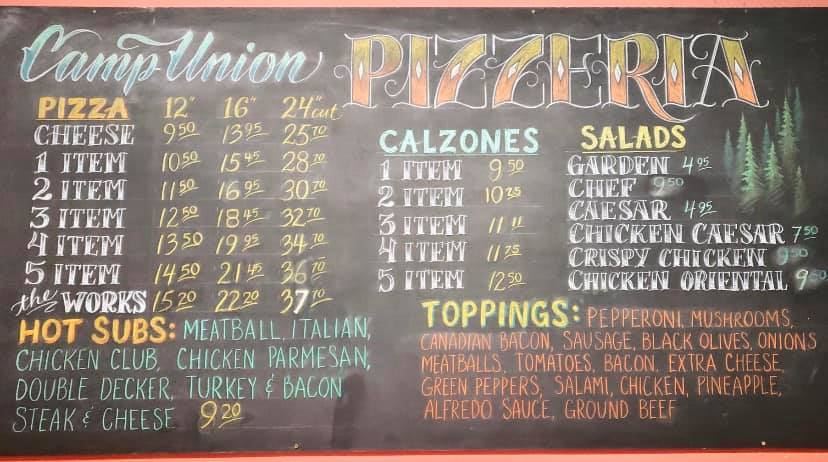 Camp Union PIZZERIA
PIZZA 12" 16" 24" cut
CHEESE 9 50 13 95 25 70
1 ITEM 10 50 15 45 28 70
2 ITEM 11 50 16 95 30 70
3 ITEM 12 50 18 45 32 70
4 ITEM 13 50 19 95 34 70
5 ITEM 14 50 21 45 36 70
the WORKS 15 20 22 20 37 70
HOT SUBS: MEATBALL, ITALIAN,
CHICKEN CLUB, CHICKEN PARMESAN,
DOUBLE DECKER, TURKEY & BACON
STEAK & CHEESE 9 20
CALZONES
1 ITEM 9 50
2 ITEM 10 25
3 ITEM 11 11
4 ITEM 11 75
5 ITEM 12 50
SALADS
GARDEN 4 95
CHEF 9 50
CAESAR 4 95
CHICKEN CAESAR 7 50
CRISPY CHICKEN 9 50
CHICKEN ORIENTAL
TOPPINGS: PEPPERONI, MUSHROOMS,
CANADIAN BACON, SAUSAGE, BLACK OLIVES, ONIONS
MEATBALLS, TOMATOES, BACON, EXTRA CHEESE,
GREEN PEPPERS, SALAMI, CHICKEN, PINEAPPLE,
ALFREDO SAUCE, GROUND BEEF